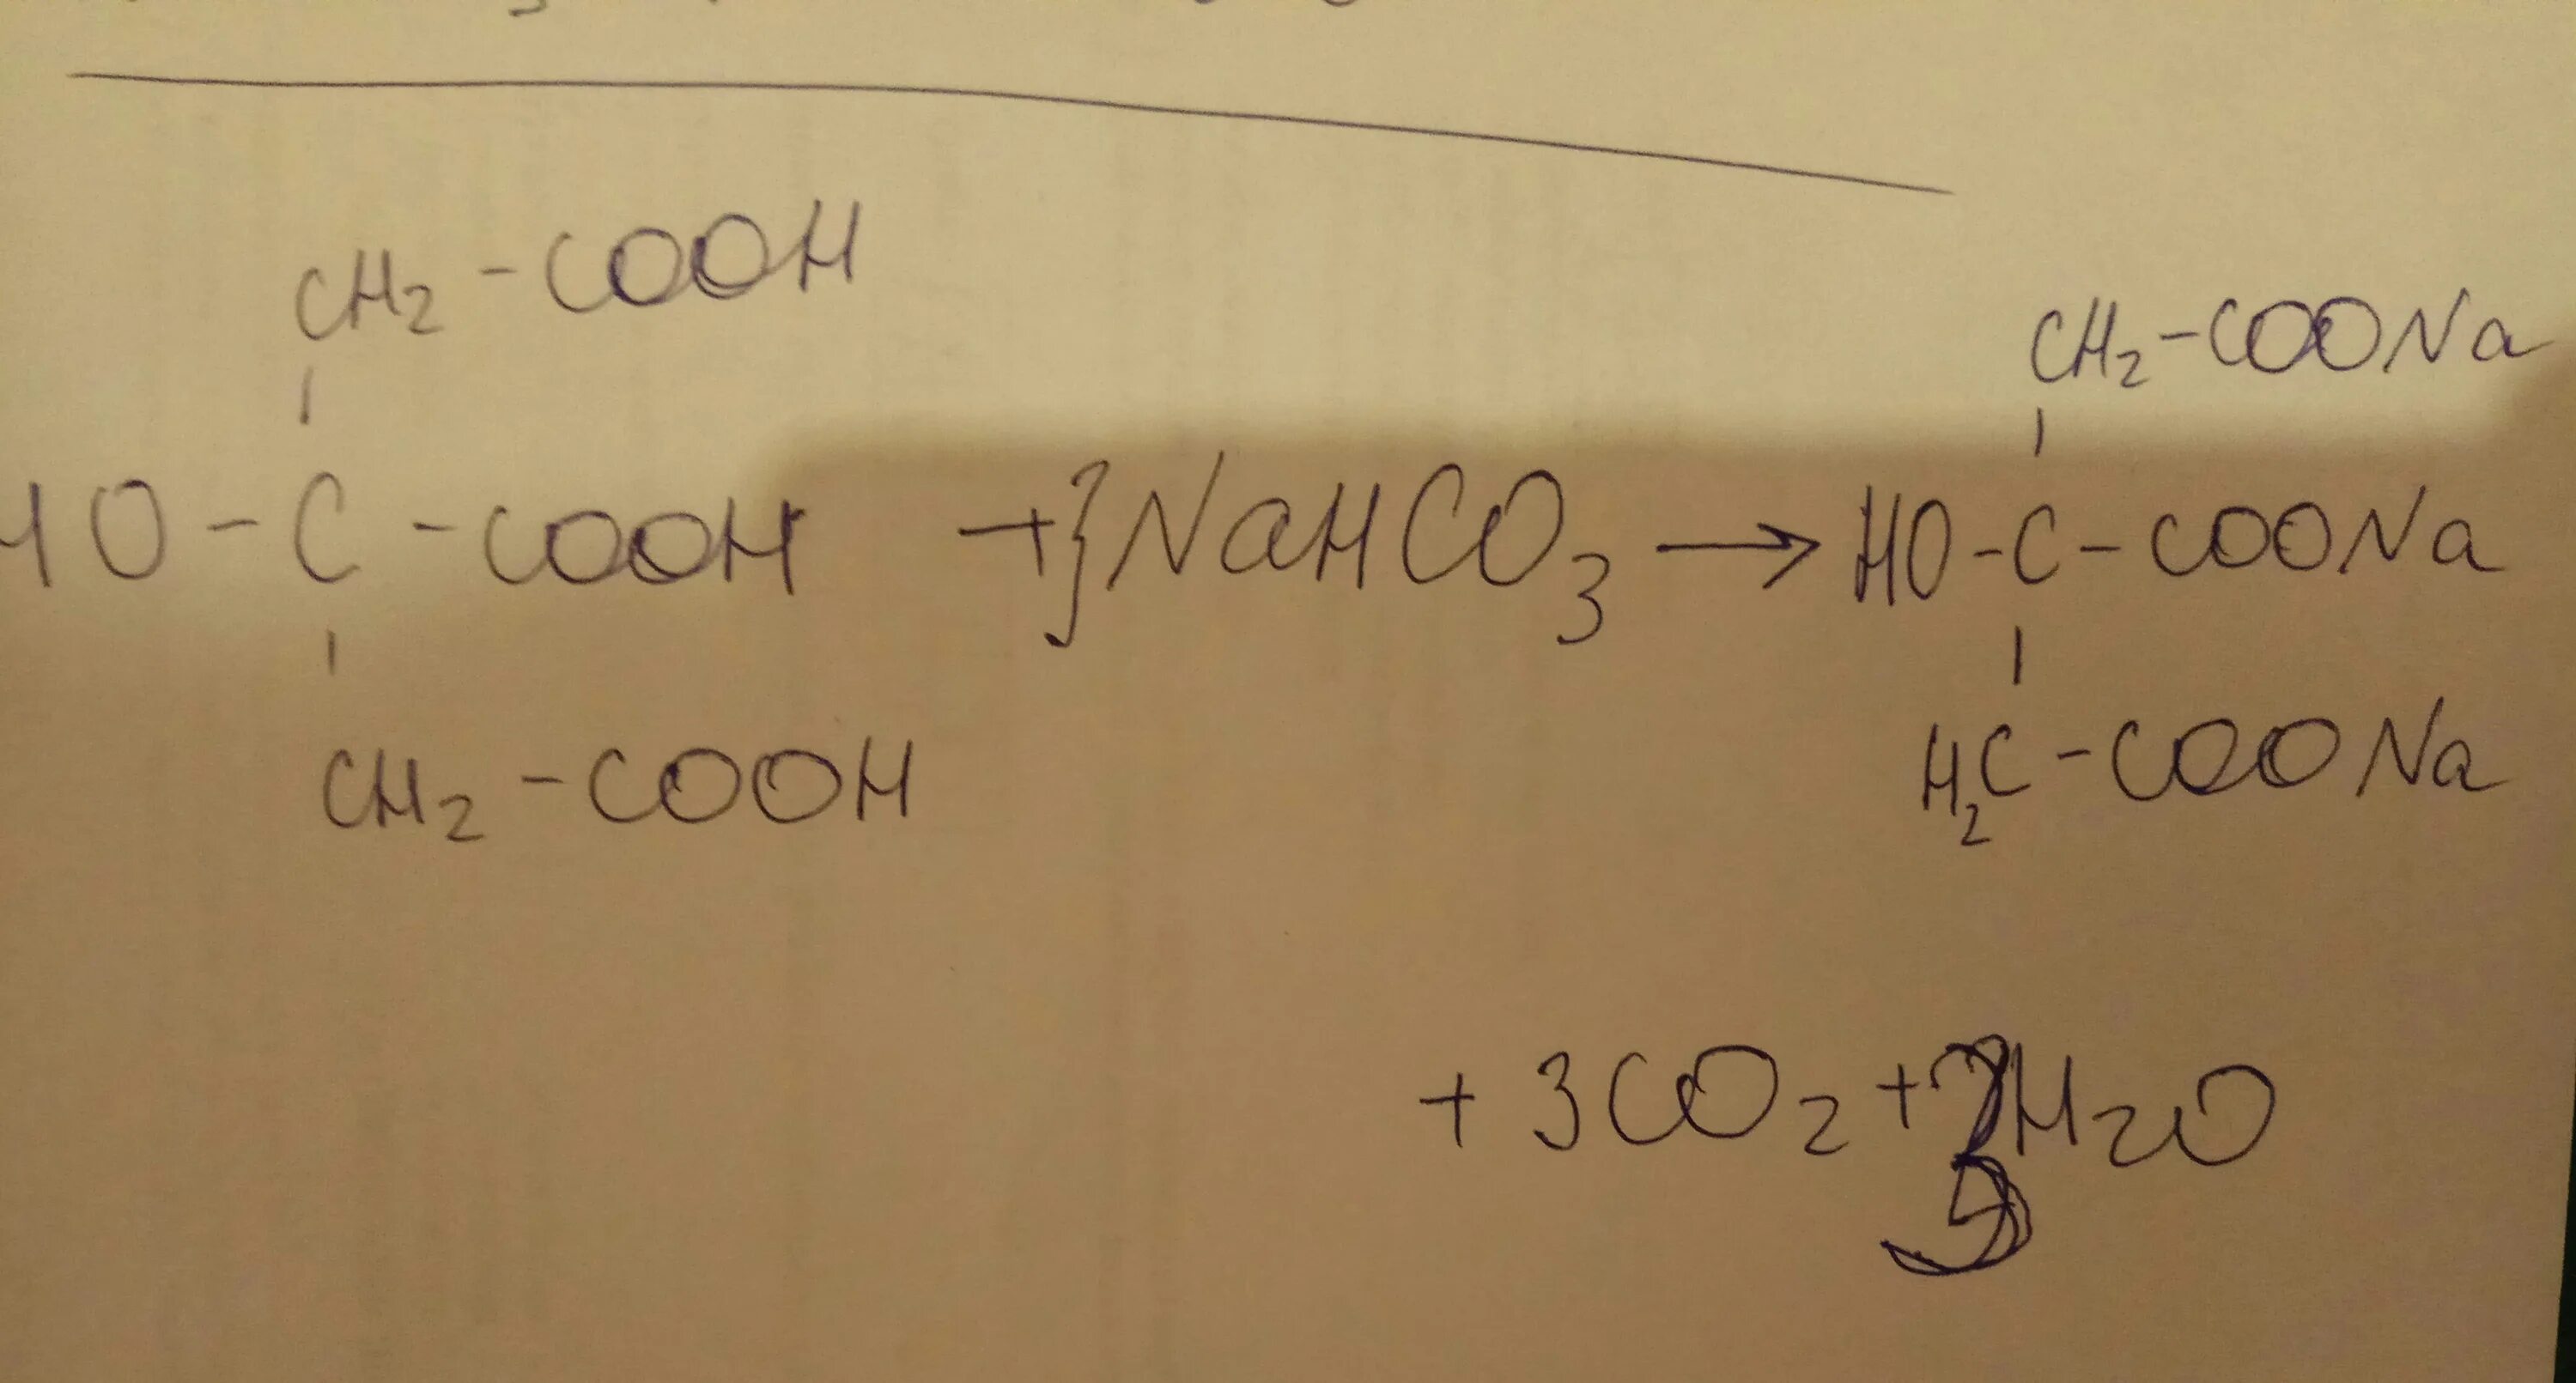 CH2 - COOH
HO - C - COOH + 3NaHCO3 → HO - C - COONa
CH2 - COONa
CH2 - COOH
H2C - COONa
+ 3CO2 + 3H2O